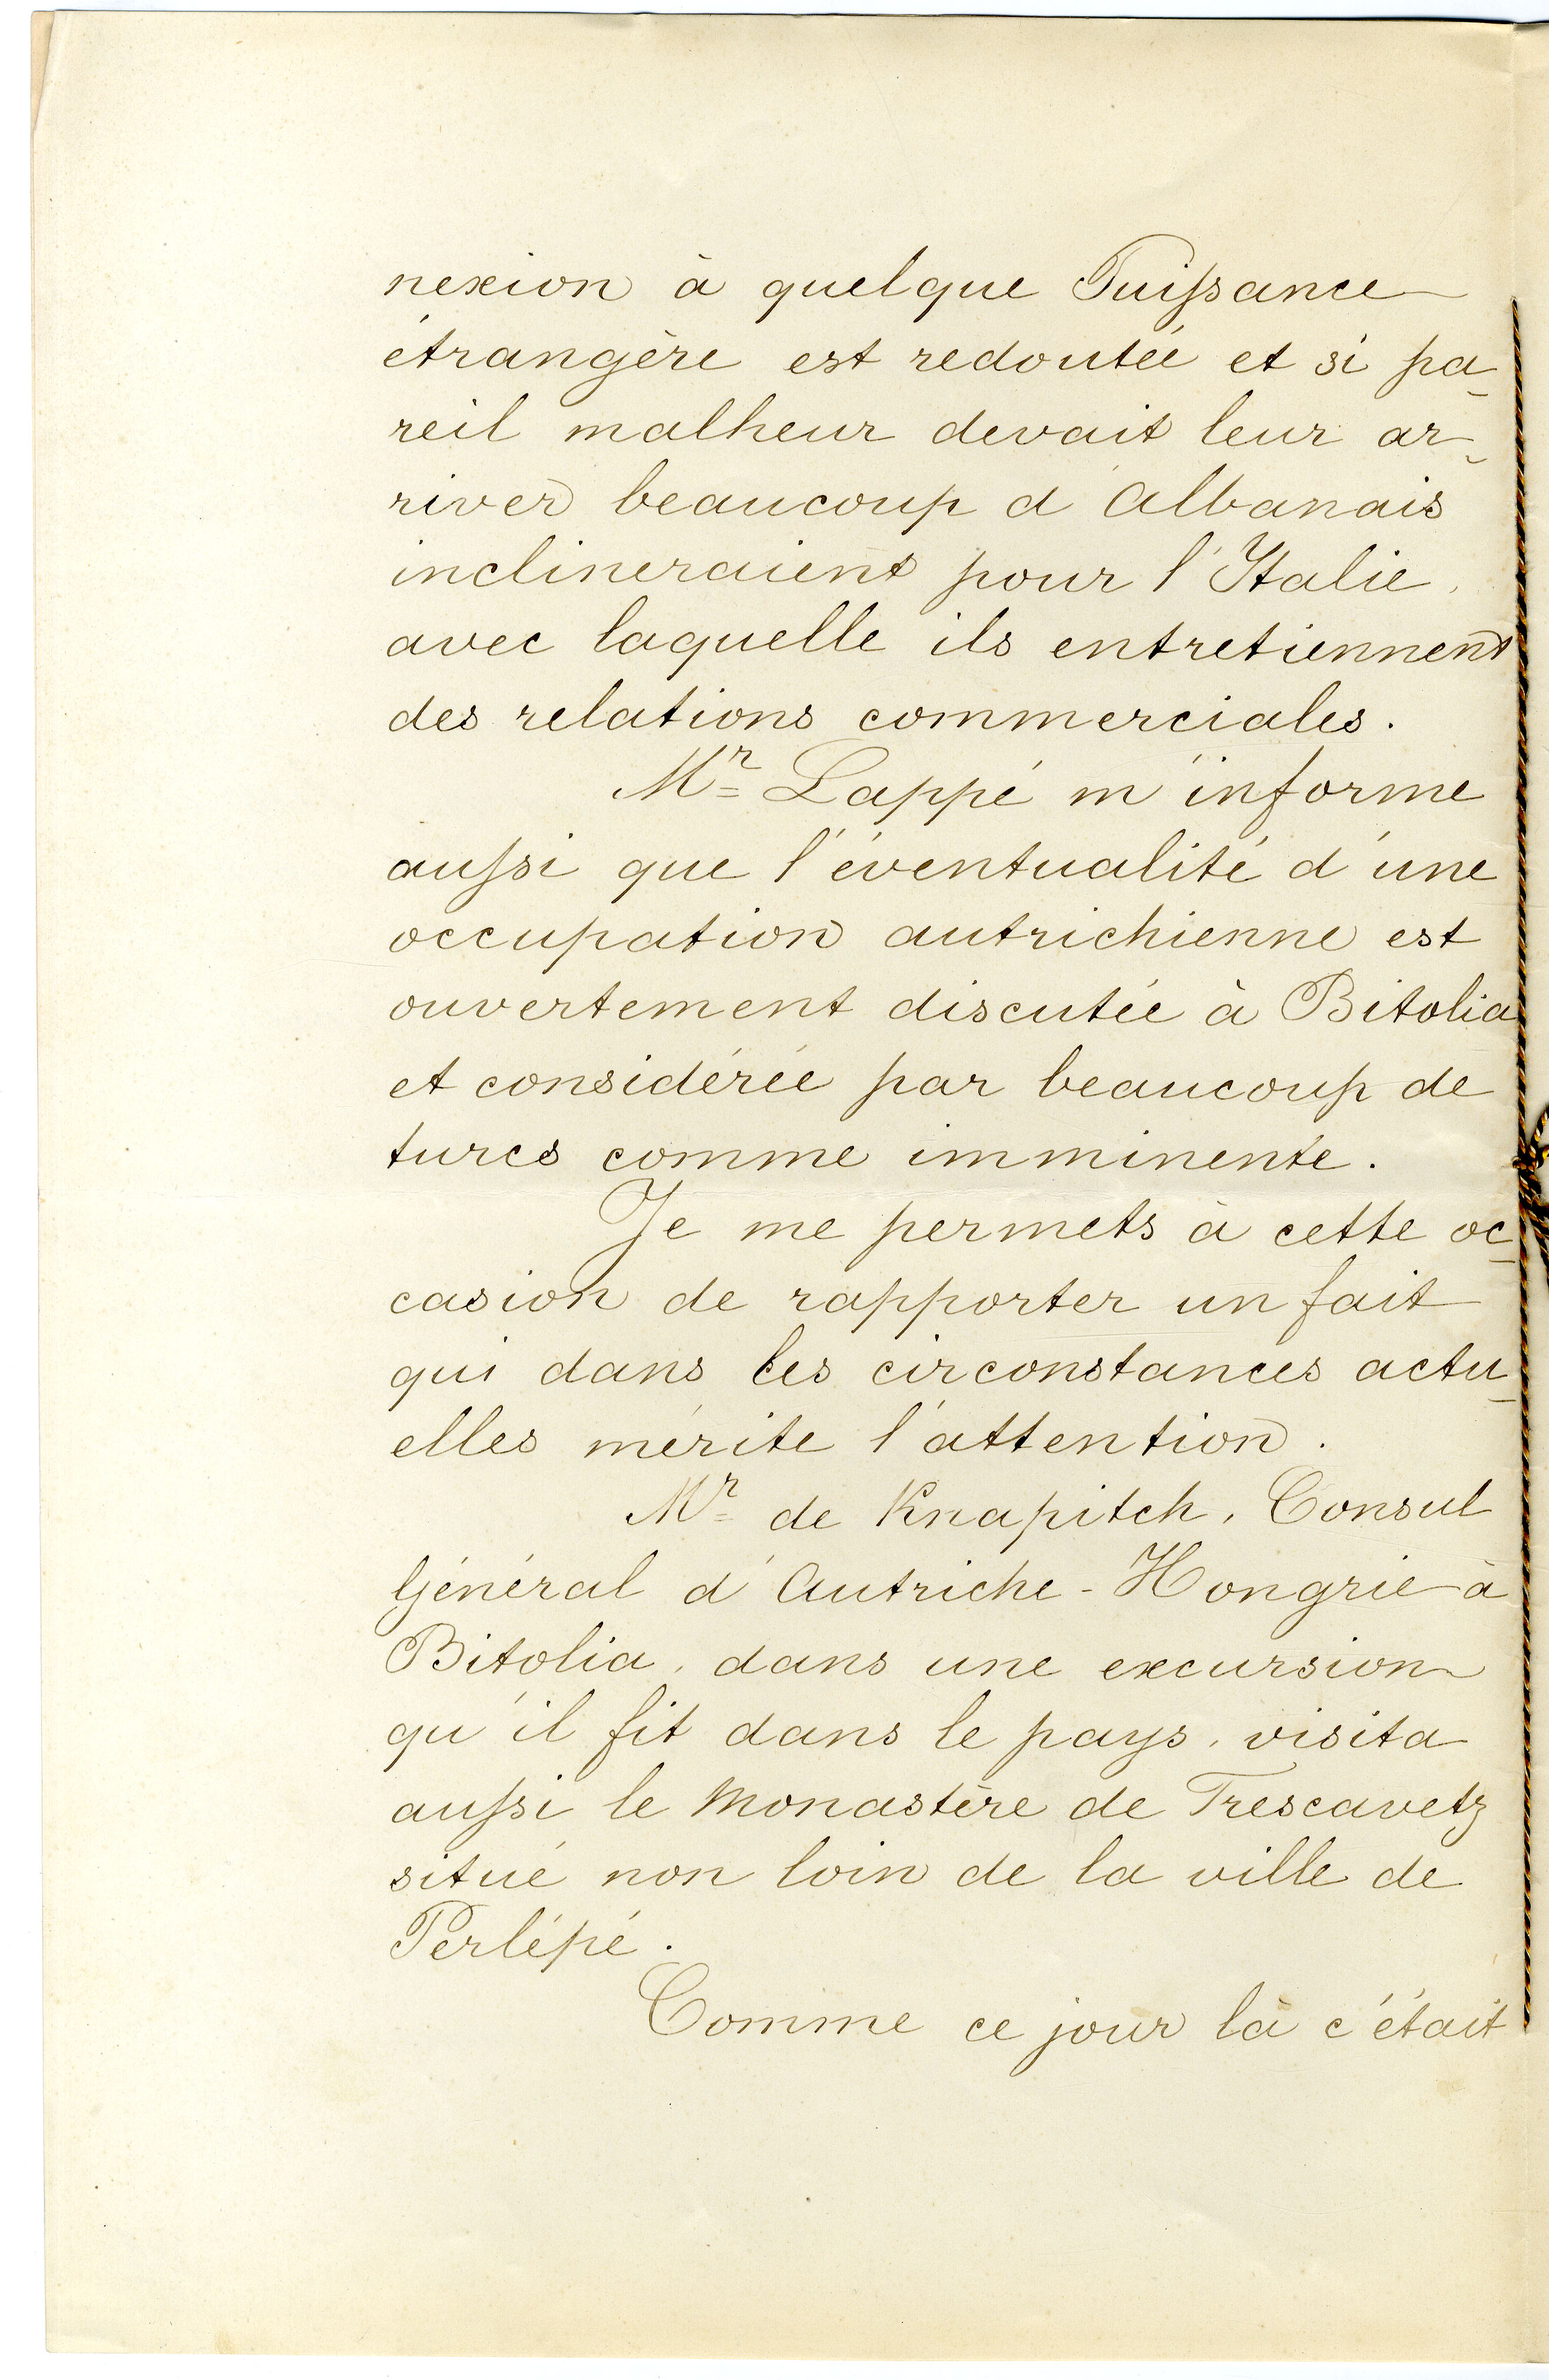 nexion à quelque Puissance
étrangère est redoutée et si pa-
reil malheur devait leur ar-
river beaucoup d'Albanais
inclineraient pour l'Italie,
avec laquelle ils entretiennent
des relations commerciales.
Mr Lappé m'informe
aussi que l'éventualité d'une
occupation autrichienne est
ouvertement discutée à Bitolia
et considérée par beaucoup de
turcs comme imminente.
Je me permets à cette oc-
casion de rapporter un fait
qui dans les circonstances actu-
elles mérite l'attention.
Mr de Knapitch, Consul
Général d'Autriche-Hongrie à
Bitolia, dans une excursion
qu'il fit dans le pays, visita
aussi le Monastère de Trescavetz
situé non loin de la ville de
Perlépé.
Comme ce jour là c'était